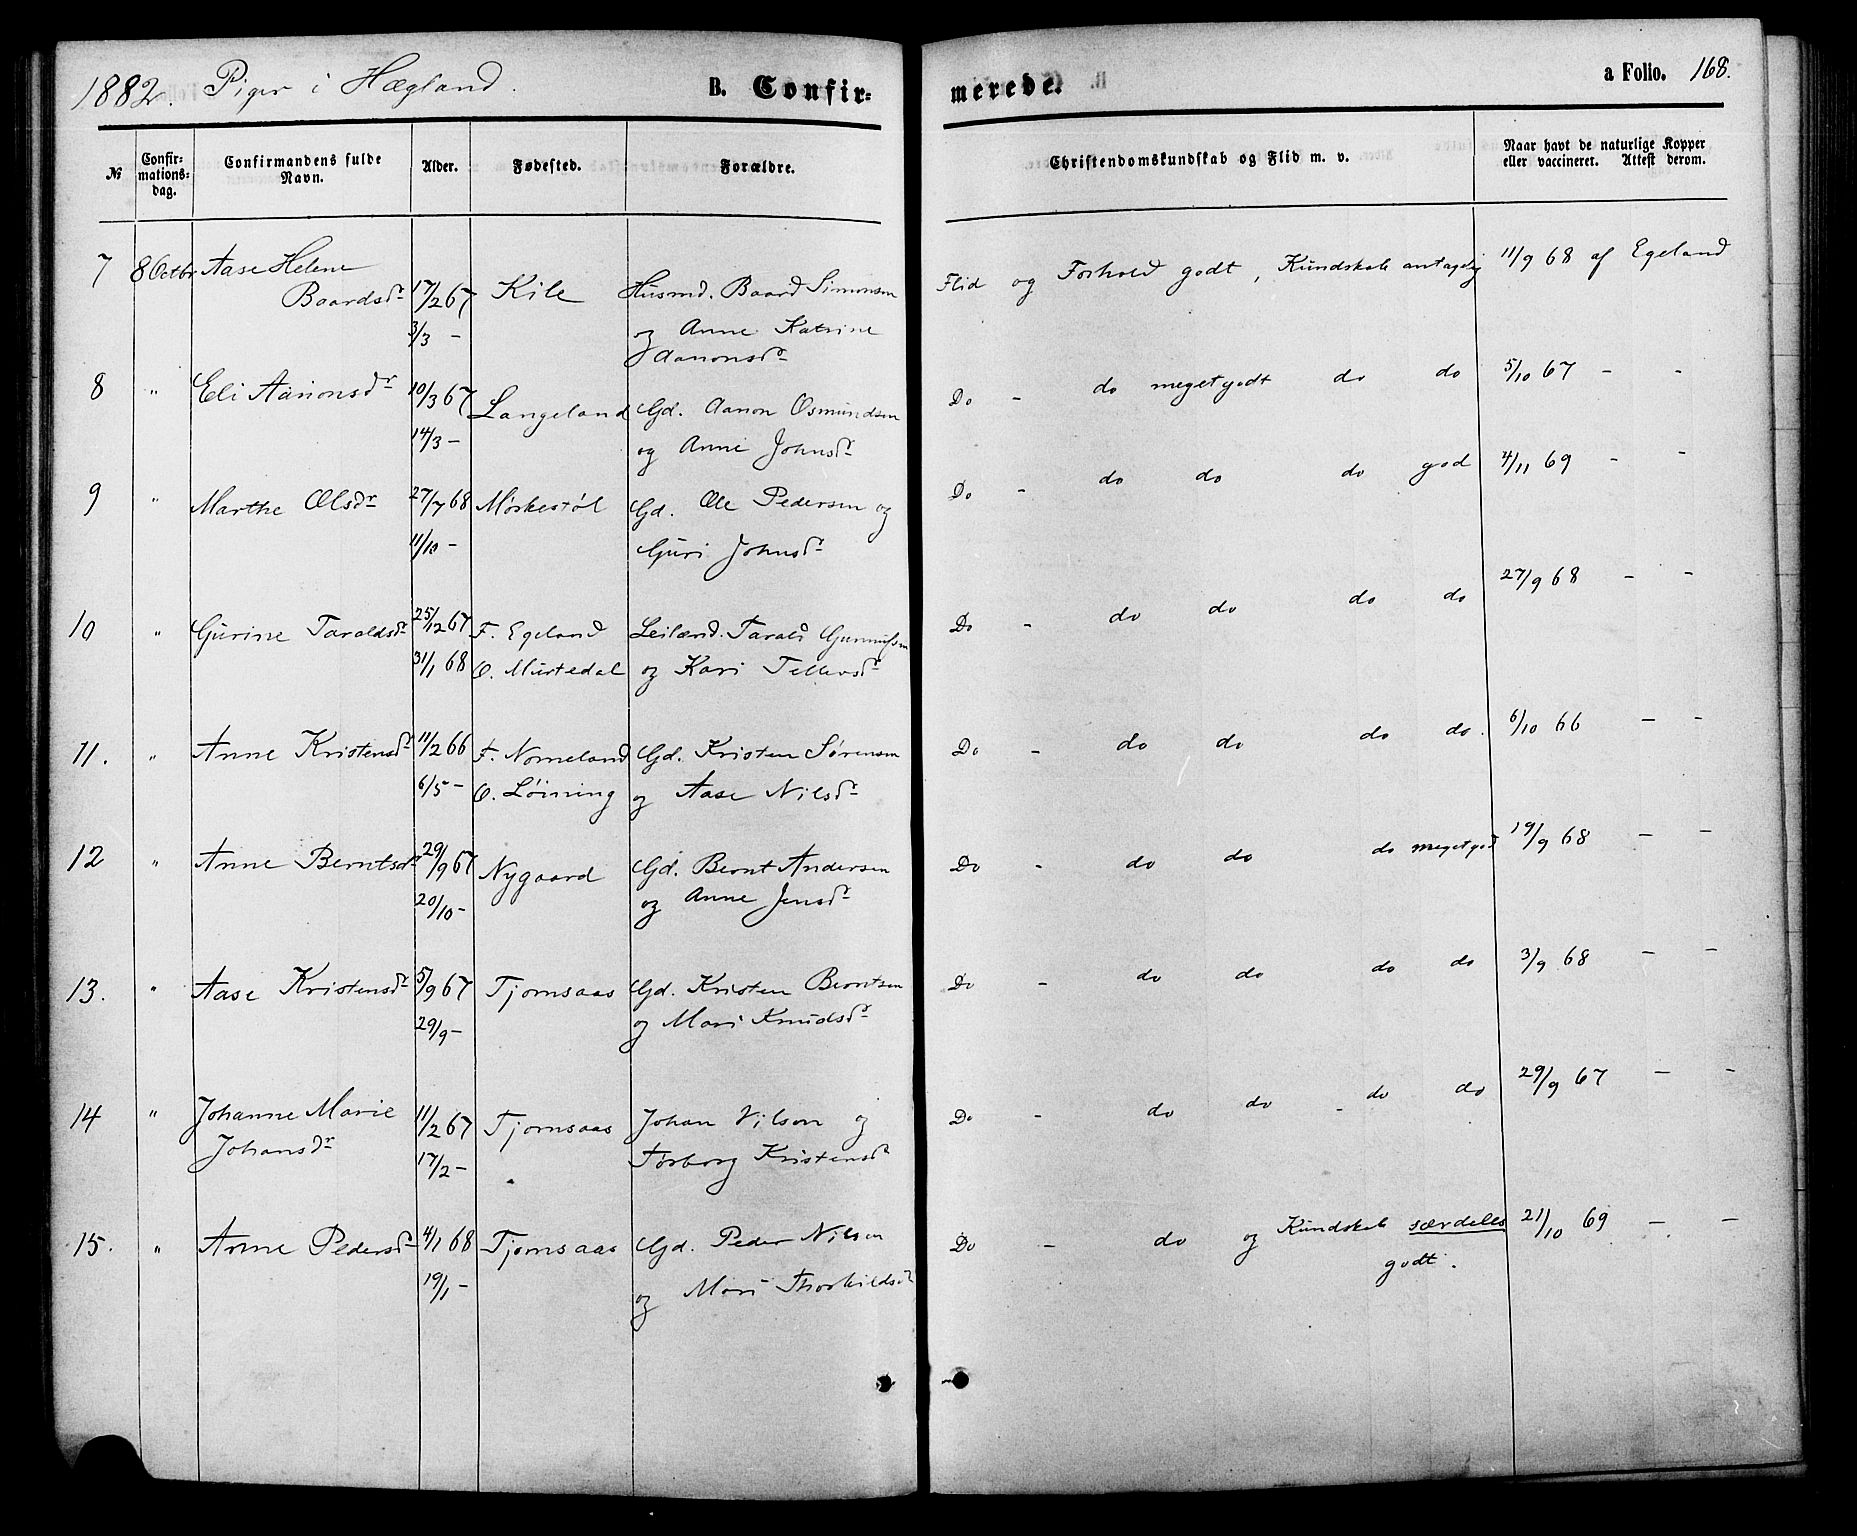 1882. Piger i Hægland. B. Confir= merede. a Folio. 168.
№ Confir=mations=dag. Confirmandens fulde Navn. Alder. Fødested. Forældre. Christendomskundskab og Flid m. v. Naar havt de naturlige Kopper eller vaccineret. Attest derom.
7 8 Octbr Aase Helene Flid og Forhold godt, Kundskab antagelig 11/9 68 af Egeland
Baardsdr 17/2 67 Kile Husmd. Baard Simonsen
3/3 - og Anne Katrine
Aanonsdr
8 " Eli Aanonsdr 10/3 67 Langeland Gd. Aanon Osmundsen Do - do megetgodt do do 5/10 67 - -
14/3 - og Anne Johnsdr
9 " Marthe Olsdr 27/7 68 Mørkestøl Gd. Ole Pedersen og Do - do do do god 4/11 69 - -
11/10 - Guri Johnsdr
10 " Gurine Taraldsdr 25/12 67 F. Egeland Leilænd. Tarald Gunnufsen Do - do do do do 27/9 68 - -
31/1 68 O. Murtedal og Kari Tellevsdr
11. " Anne Kristensdr 11/2 66 F. Nomeland Gd. Kristen Sørensen Do - do do do do. 6/10 66 - -
6/5 - O. Løining og Aase Nilsdr
12 " Anne Berntsdr 29/9 67 Nygaard Gd. Bernt Andersen Do - do do do megetgod 19/9 68 - -
20/10 - og Anne Jensdr
13. " Aase Kristensdr 5/9 67 Tjomsaas Gd. Kristen Berntsen Do - do do do do 3/9 68 - -
29/9 - og Mari Knudsdr
14 " Johanne Marie 11/2 67 Tjomsaas Johan Nilson og Do - do do - do do 29/9 67 - -
Johansdr 17/2 - Torborg Kristensdr
15. " Anne Pedersdr 4/1 68 Tjomsaas Gd. Peder Nilson Do - do og Kundskab særdeles 21/10 69 - -
19/1 - og Mari Thorkildsdr godt.